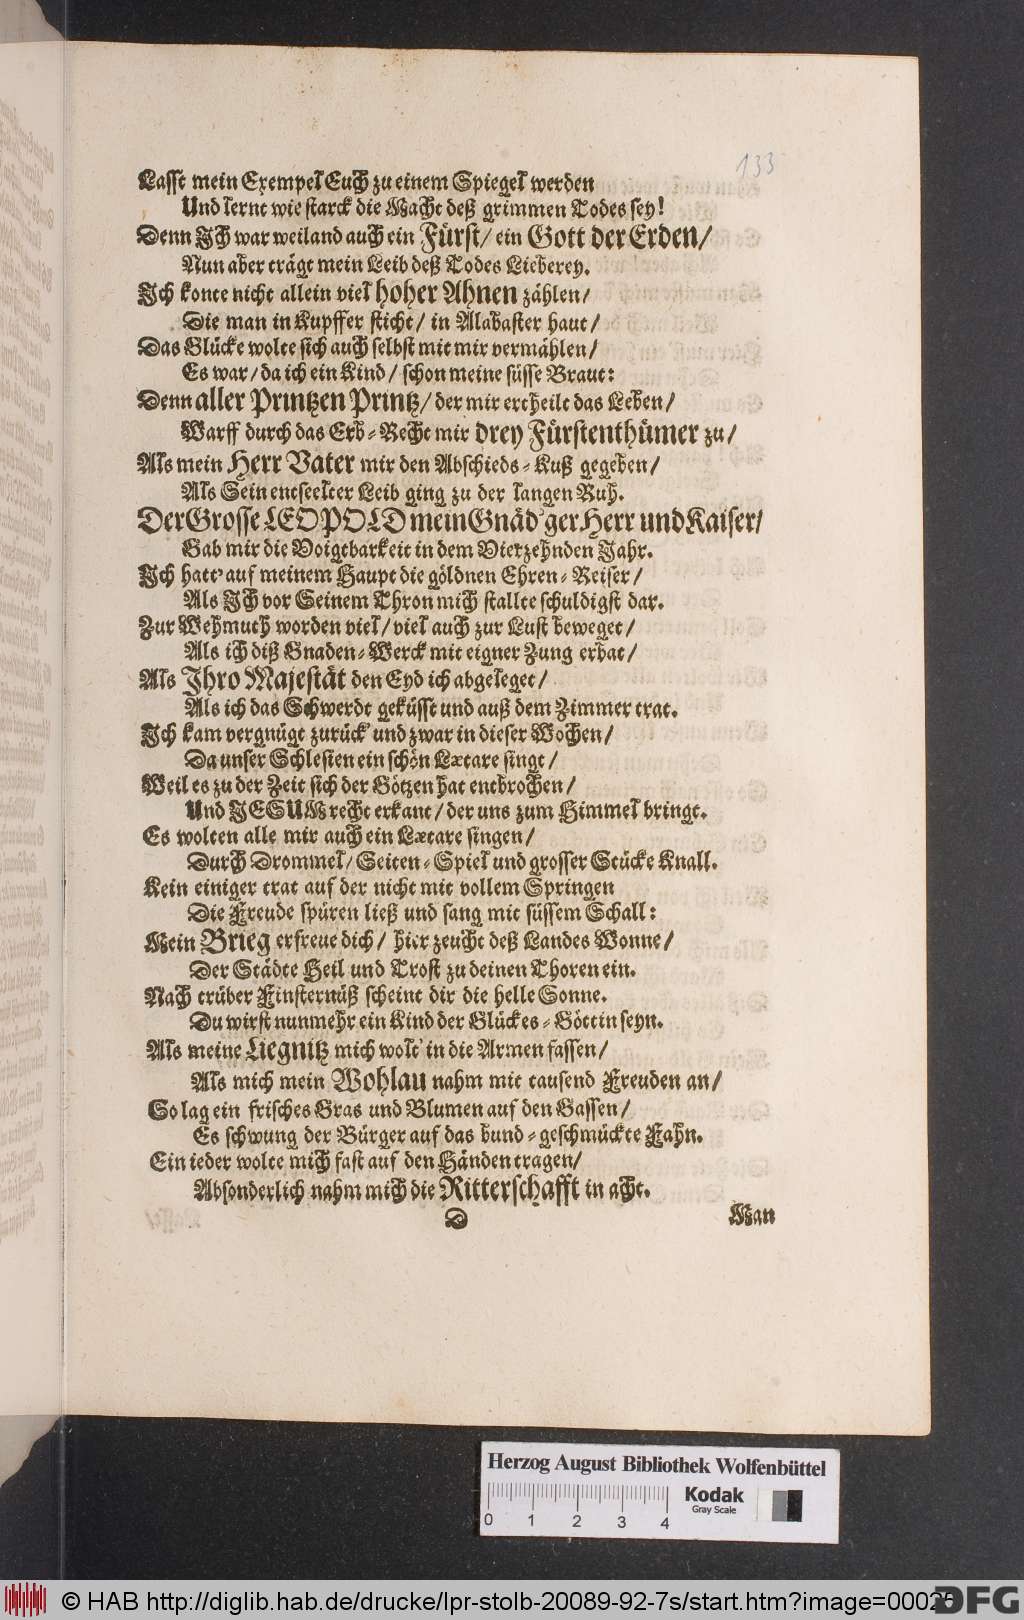 133
Lasst mein Exempel Euch zu einem Spiegel werden
Und lernt wie starck die Macht deß grimmen Todes sey!
Denn Ich war weiland auch ein Fürst/ ein Gott der Erden/
Nun aber trägt mein Leib deß Todes Lieberey.
Ich konte nicht allein viel hoher Ahnen zählen/
Die man in Kupffer sticht/ in Alabaster haut/
Das Glücke wolte sich auch selbst mit mir vermählen/
Es war/ da ich ein Kind/ schon meine süsse Braut:
Denn aller Printzen Printz/ der mir ertheilt das Leben/
Warff durch das Erb-Recht mir drey Fürstenthümer zu/
Als mein Herr Vater mir den Abschieds-Kuß gegeben/
Als Sein entseelter Leib ging zu der langen Ruh.
Der Grosse LEOPOLD mein Gnäd'ger Herr und Kaiser/
Gab mir die Voigtbarkeit in dem Vierzehnden Jahr.
Ich hatt' auf meinem Haupt die göldnen Ehren-Reiser/
Als Ich vor Seinem Thron mich stallte schuldigst dar.
Zur Wehmuth worden viel/ viel auch zur Lust beweget/
Als ich diß Gnaden-Werck mit eigner Zung erbat/
Als Ihro Majestät den Eyd ich abgeleget/
Als ich das Schwerdt geküsst und auß dem Zimmer trat.
Ich kam vergnügt zurück' und zwar in dieser Wochen/
Da unser Schlesien ein schön Lætare singt/
Weil es zu der Zeit sich der Götzen hat entbrochen/
Und JESUM recht erkant/ der uns zum Himmel bringt.
Es wolten alle mir auch ein Lætare singen/
Durch Drommel/ Seiten-Spiel und grosser Stücke Knall.
Kein einiger trat auf der nicht mit vollem Springen
Die Freude spüren ließ und sang mit süssem Schall:
Mein Brieg erfreue dich/ hier zeucht deß Landes Wonne/
Der Städte Heil und Trost zu deinen Thoren ein.
Nach trüber Finsternüß scheint dir die helle Sonne.
Du wirst nunmehr ein Kind der Glückes-Göttin seyn.
Als meine Liegnitz mich wolt' in die Armen fassen/
Als mich mein Wohlau nahm mit tausend Freuden an/
So lag ein frisches Gras und Blumen auf den Gassen/
Es schwung der Bürger auf das bund-geschmückte Fahn.
Ein ieder wolte mich fast auf den Händen tragen/
Absonderlich nahm mich die Ritterschafft in acht.
D
Man
Herzog August Bibliothek Wolfenbüttel
0 1 2 3 4
Kodak
Gray Scale
© HAB http://diglib.hab.de/drucke/lpr-stolb-20089-92-7s/start.htm?image=00025
DFG